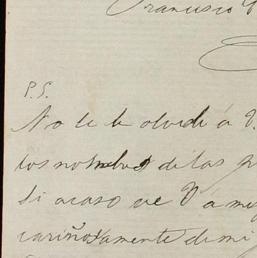 Francisco
P.S.
No le le olvide á V.
los nombres de las
Si acaso ve V á
cariñosamente de mi